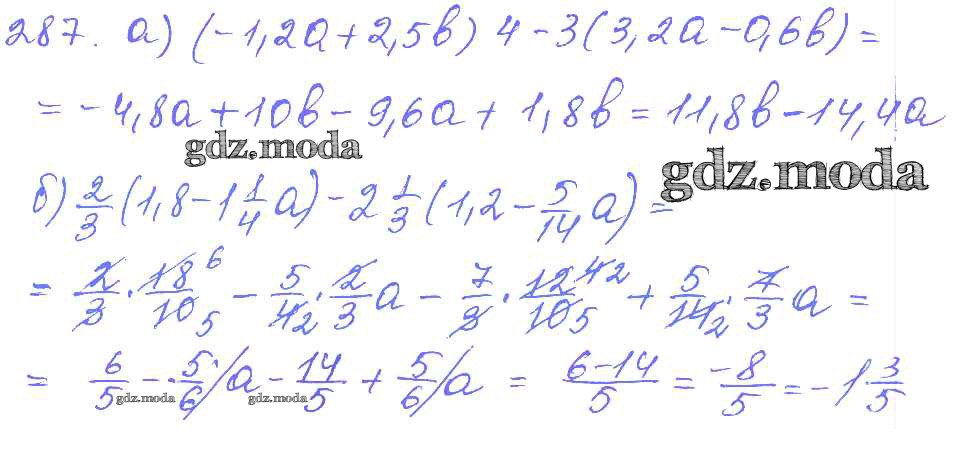 287. а) (-1,2a+2,5b) 4-3(3,2a-0,6b)=
= -4,8a+10b-9,6a+1,8b=11,8b-14,4a
gdz.moda
gdz.moda
б) 2/3 (1,8-1 1/4 a)-2 1/3 (1,2- 5/14 a)=
= 2/3 · 18 6/10 5 - 5/4 2 · 2/3 a - 7/3 · 12 4 2/10 5 + 5/14 2 · 7/3 a =
= 6/5 - 5/6 a - 14/5 + 5/6 a = 6-14/5 = -8/5 = -1 3/5
gdz.moda gdz.moda